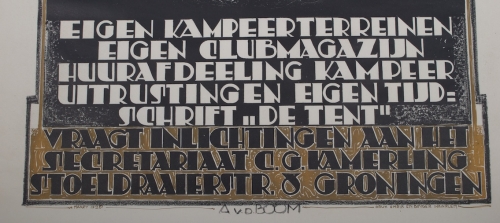 EIGEN KAMPEERTERREINEN
EIGEN CLUBMAGAZIJN
HUURAFDEELING KAMPEER
UITRUSTING EN EIGEN TIJD=
SCHRIFT „DE TENT"
VRAAGT INLICHTINGEN AAN HET
SECRETARIAAT C.G. KAMERLING
STOELDRAAIERSTR. 8 GRONINGEN
A v D BOOM